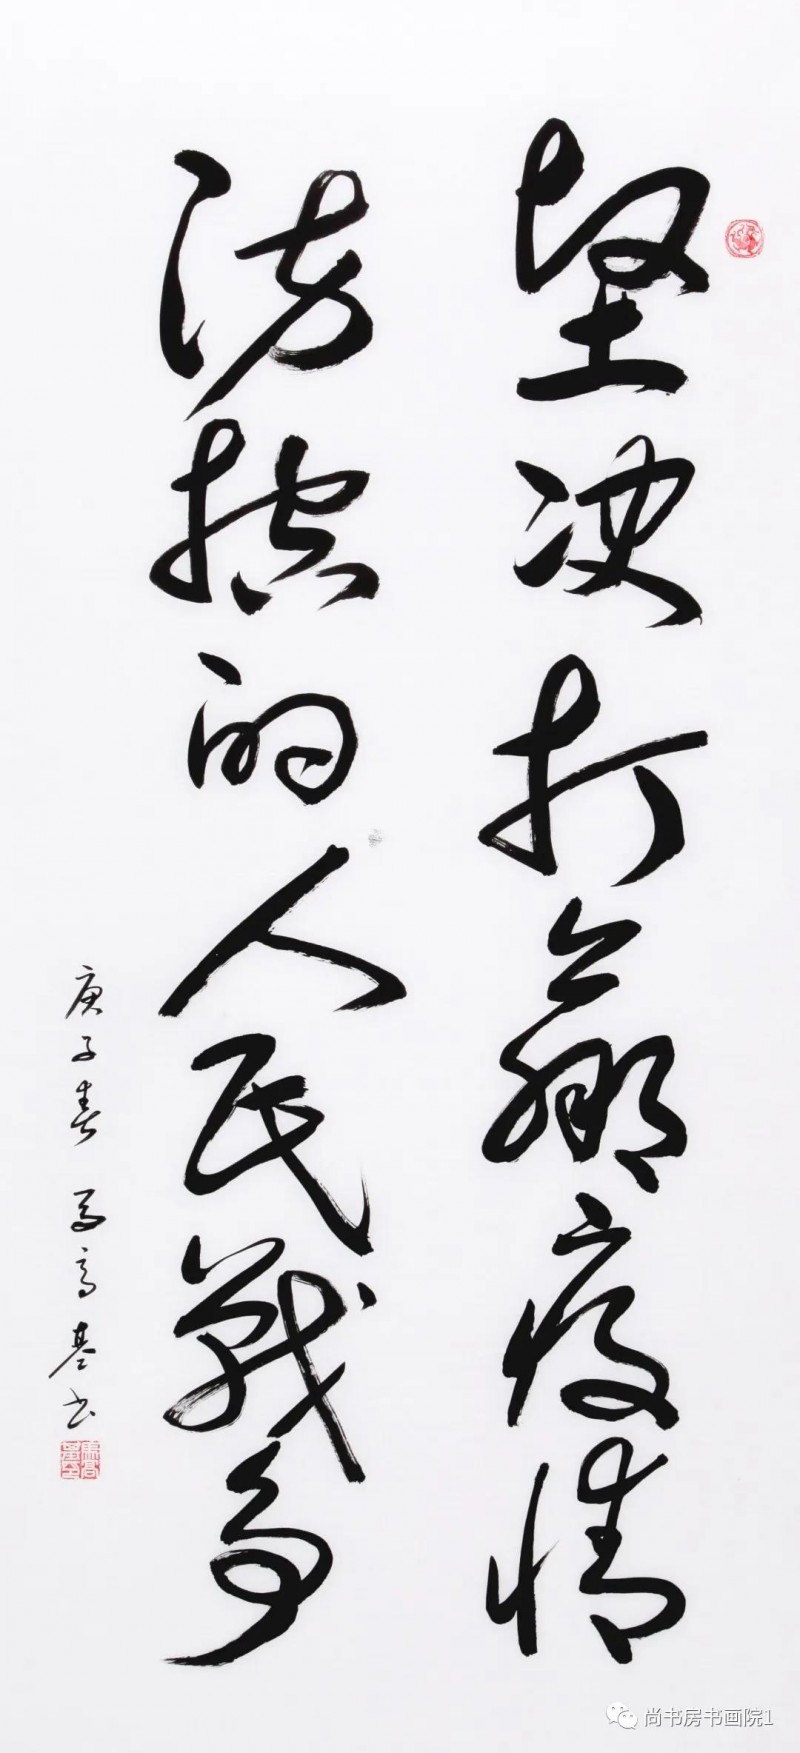 坚决打赢疫情
防控的人民战争
庚子春 马高基书
尚书房书画院1